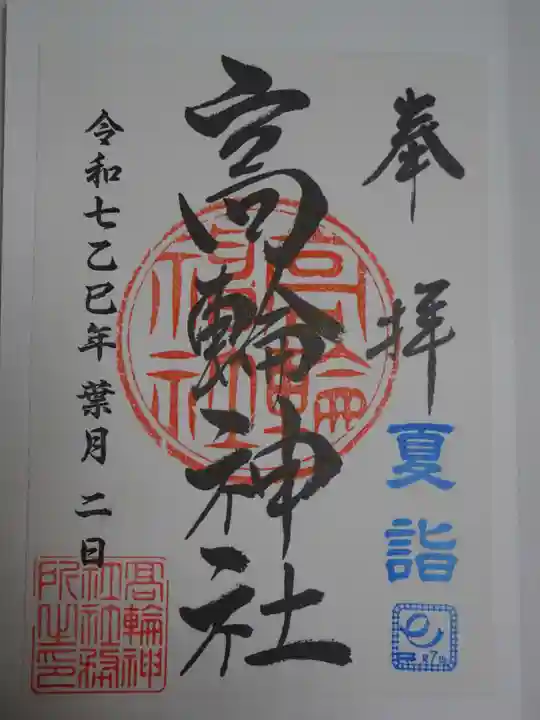 奉拝
夏詣
高輪神社
高輪神社
令和七乙巳年葉月二日
高輪神
社社務
所之印